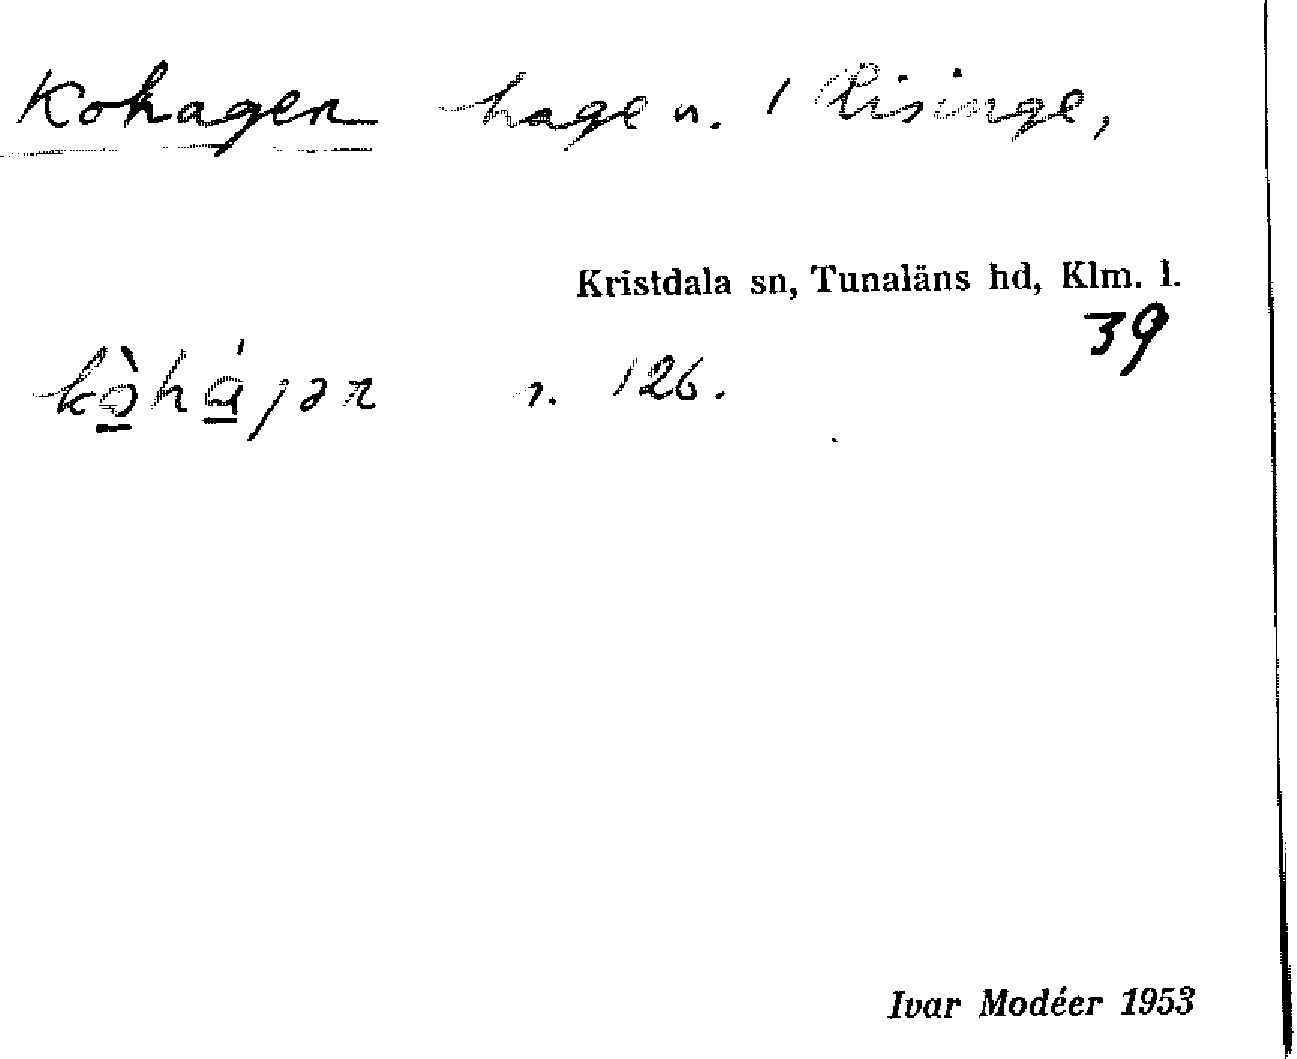 Kohagen hage n. 1 Risinge,
Kristdala sn, Tunaläns hd, Klm. l.
39
kò̱há̱jən s. 126.
Ivar Modéer 1953